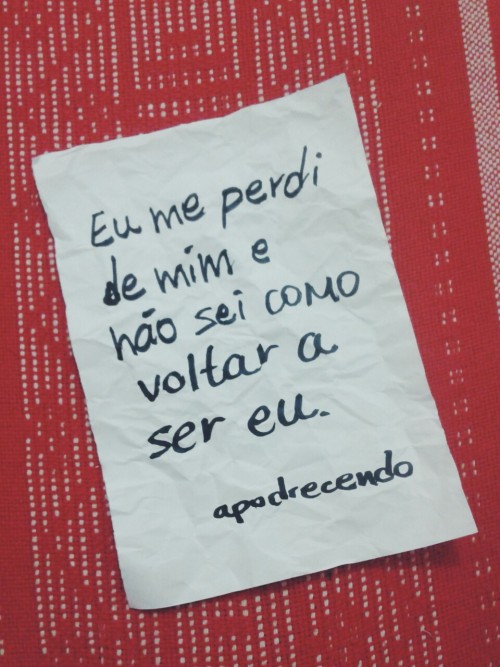 Eu me perdi
de mim e
não sei como
voltar a
ser eu.
apodrecendo